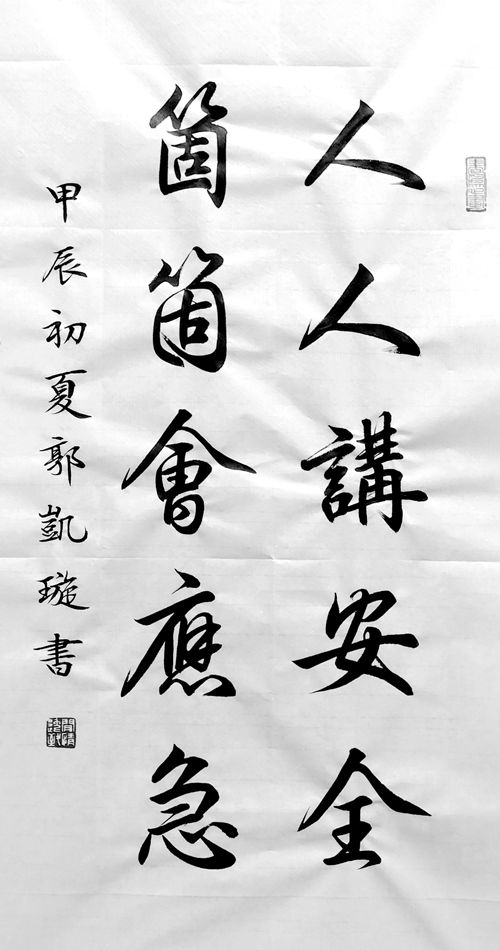 人人講安全
箇箇會應急
甲辰初夏郭凱璇書